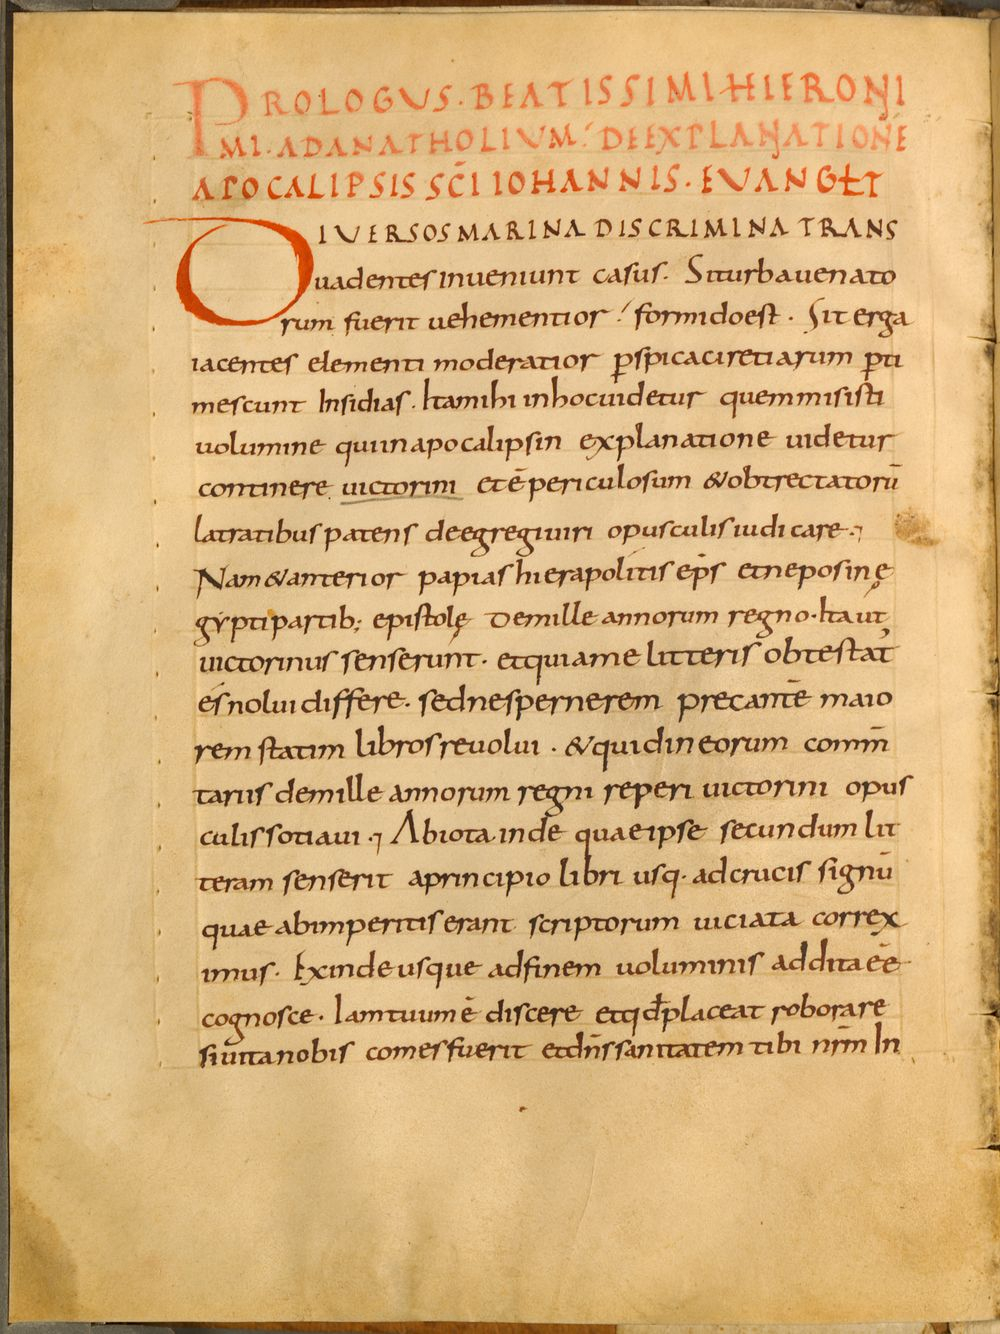 PROLOGUS · BEATISSIMI HIERONI
MI · AD ANATHOLIUM · DE EXPLANATIONE
APOCALIPSIS SC̄I IOHANNIS · EVANGŁT
DIUERSOS MARINA DISCRIMINA TRANS
uadentes inueniunt casus. Si turba uenato
rum fuerit uehementior formido est · Sit erga
iacentes elementi moderatior ꝑspicaci retiarum ꝑti
mescunt Insidias · Ita mihi in hoc uidetur quem misisti
uolumine qui in apocalipsin explanatione uidetur
continere uictorini et ē periculosum & obtrectatorū
latratibus patens de egregii uiri opusculis iudicare ·
Nam & anterior papias hierapolitis ep̄s et nepos in ę
gẏpti partib; epistolę De mille annorum regno · Ita ut
uictorinus senserunt · et quia me litteris obtestat
es nolui differe · sed ne spernerem precantē maio
rem statim libros reuolui · & quid in eorum comm̄
tariis de mille annorum regni reperi uictorini opus
culis sotiaui · Abiota inde quae ipse secundum lit
teram senserit a principio libri usq· ad crucis signū
quae ab imperitis erant scriptorum uiciata correx
imus · Exinde usque ad finem uoluminis addita eē
cognosce · Iam tuum ē discere et qđ placeat roborare
si uita nobis comes fuerit et dn̄s sanitatem tibi nr̄m In